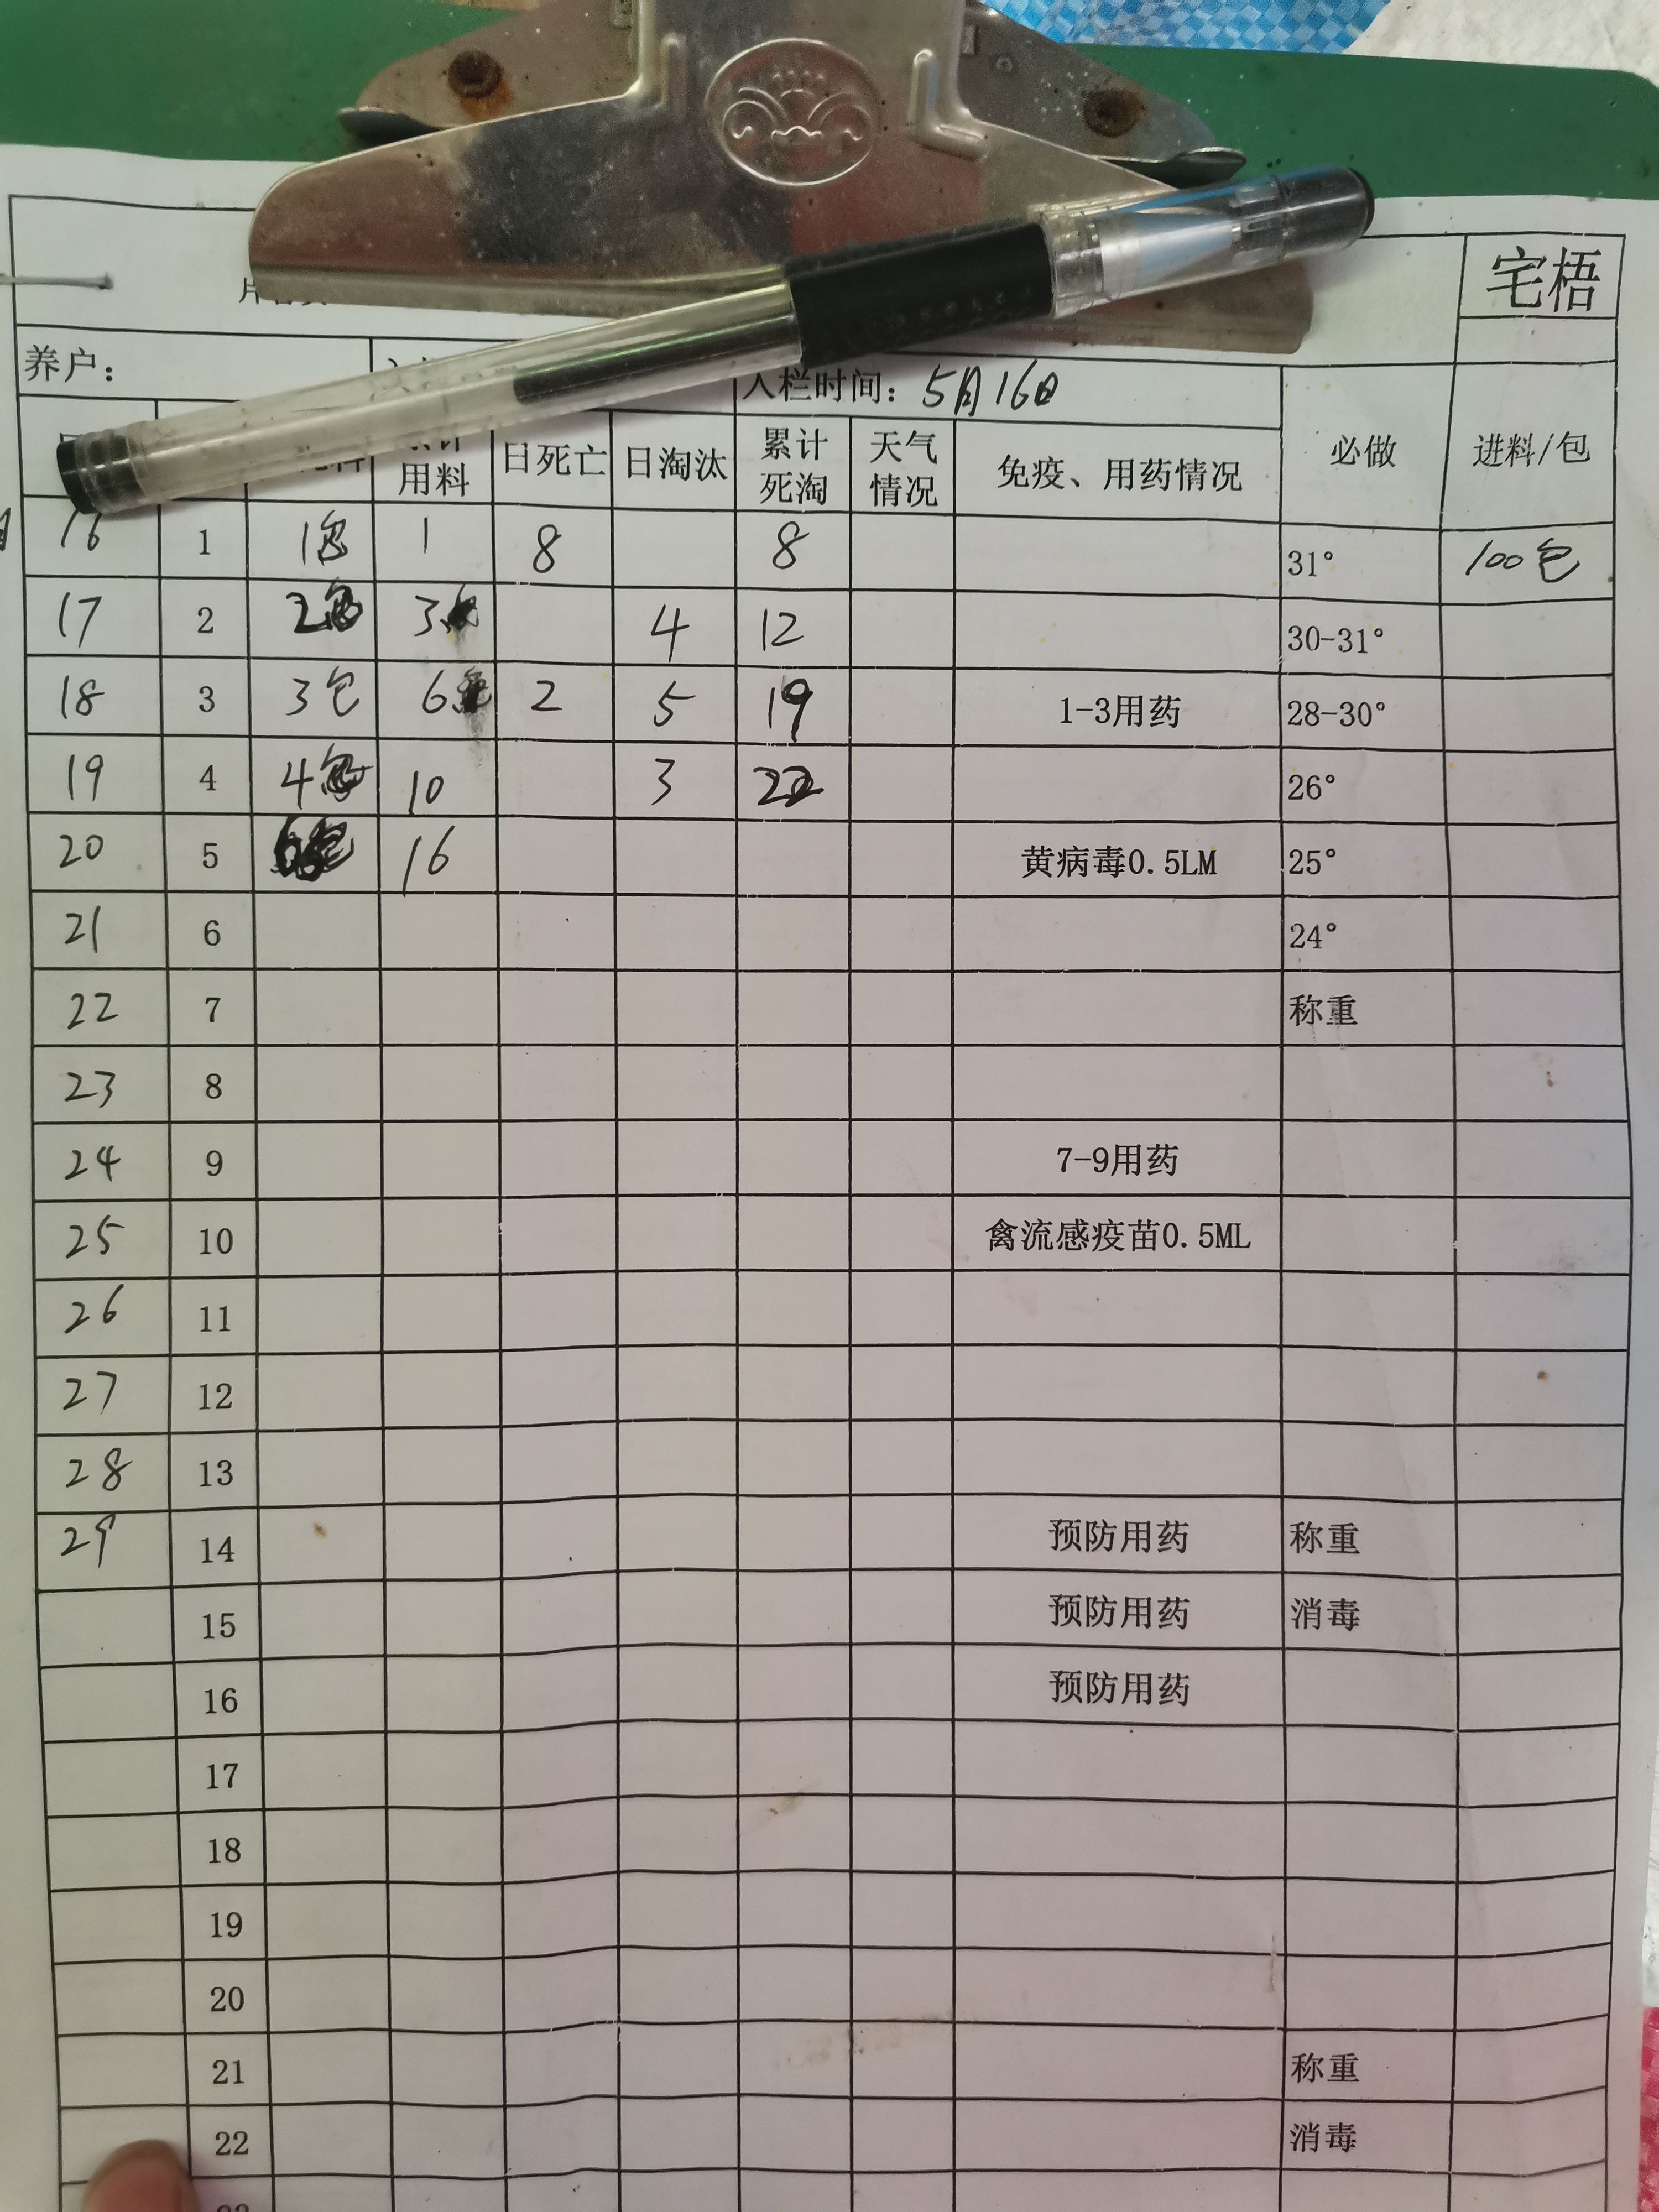 宅梧
养户：
入栏时间：5月16日
用料 日死亡 日淘汰 累计死淘 天气情况 免疫、用药情况 必做 进料/包
16 1 1包 1 8 8 31° 100包
17 2 2包 3 4 12 30-31°
18 3 3包 6 2 5 19 1-3用药 28-30°
19 4 4包 10 3 22 26°
20 5 16 黄病毒0.5LM 25°
21 6 24°
22 7 称重
23 8
24 9 7-9用药
25 10 禽流感疫苗0.5ML
26 11
27 12
28 13
29 14 预防用药 称重
15 预防用药 消毒
16 预防用药
17
18
19
20
21 称重
22 消毒